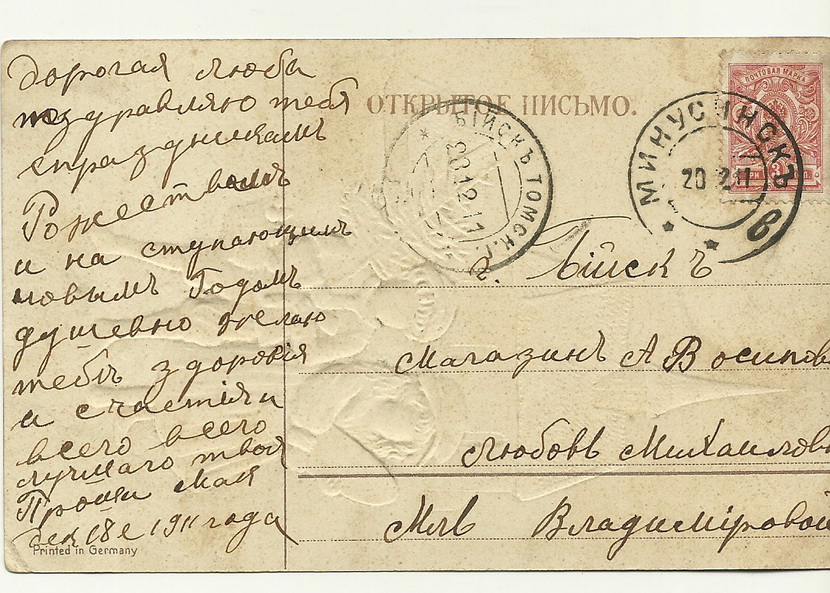 дорогая люба
поздравляю тебя
спраздникамъ
Рожествамъ
и на ступающимъ
новымъ Годомъ
душевно желаю
тебѣ здоровія
и счастія и
всего всего
лучшаго твоя
дек 18 е 1911 года
Printed in Germany
ОТКРЫТОЕ ПИСЬМО.
БІЙСКЪ ТОМСК.Г.
28 12 11
ПОЧТОВАЯ МАРКА
МИНУСИНСКЪ
20
г. Бійскъ
магазинъ А В осипов
любовь Михаловн
Владиміровой